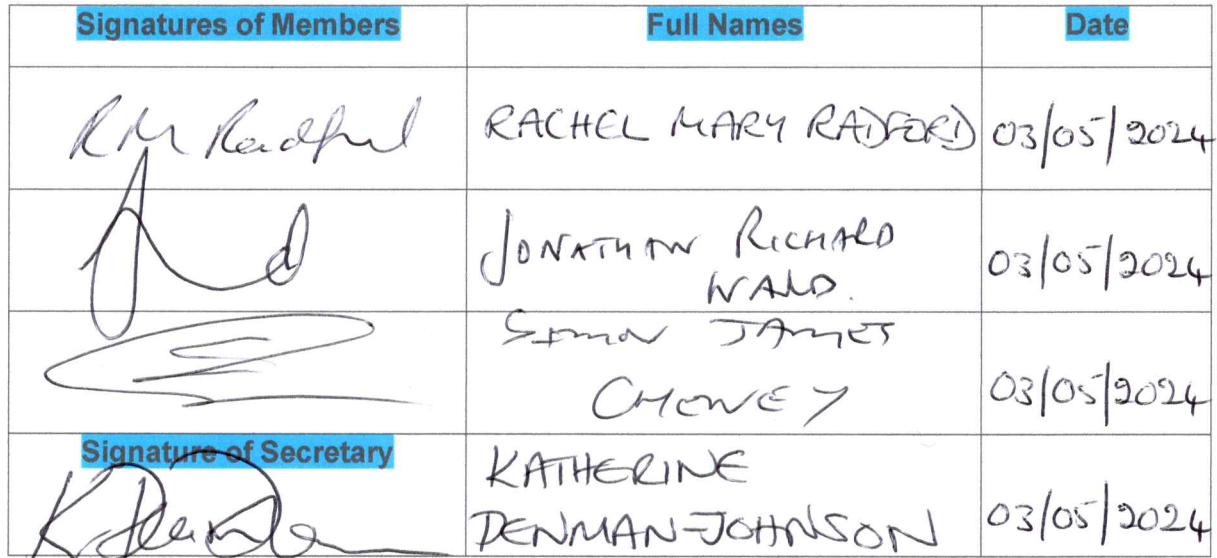 Signatures of Members Full Names Date
RM Radford RACHEL MARY RADFORD 03/05/2024
JONATHAN RICHARD
WARD. 03/05/2024
SIMON JAMES
03/05/2024
Signature of Secretary KATHERINE
DENMAN-JOHNSON 03/05/2024